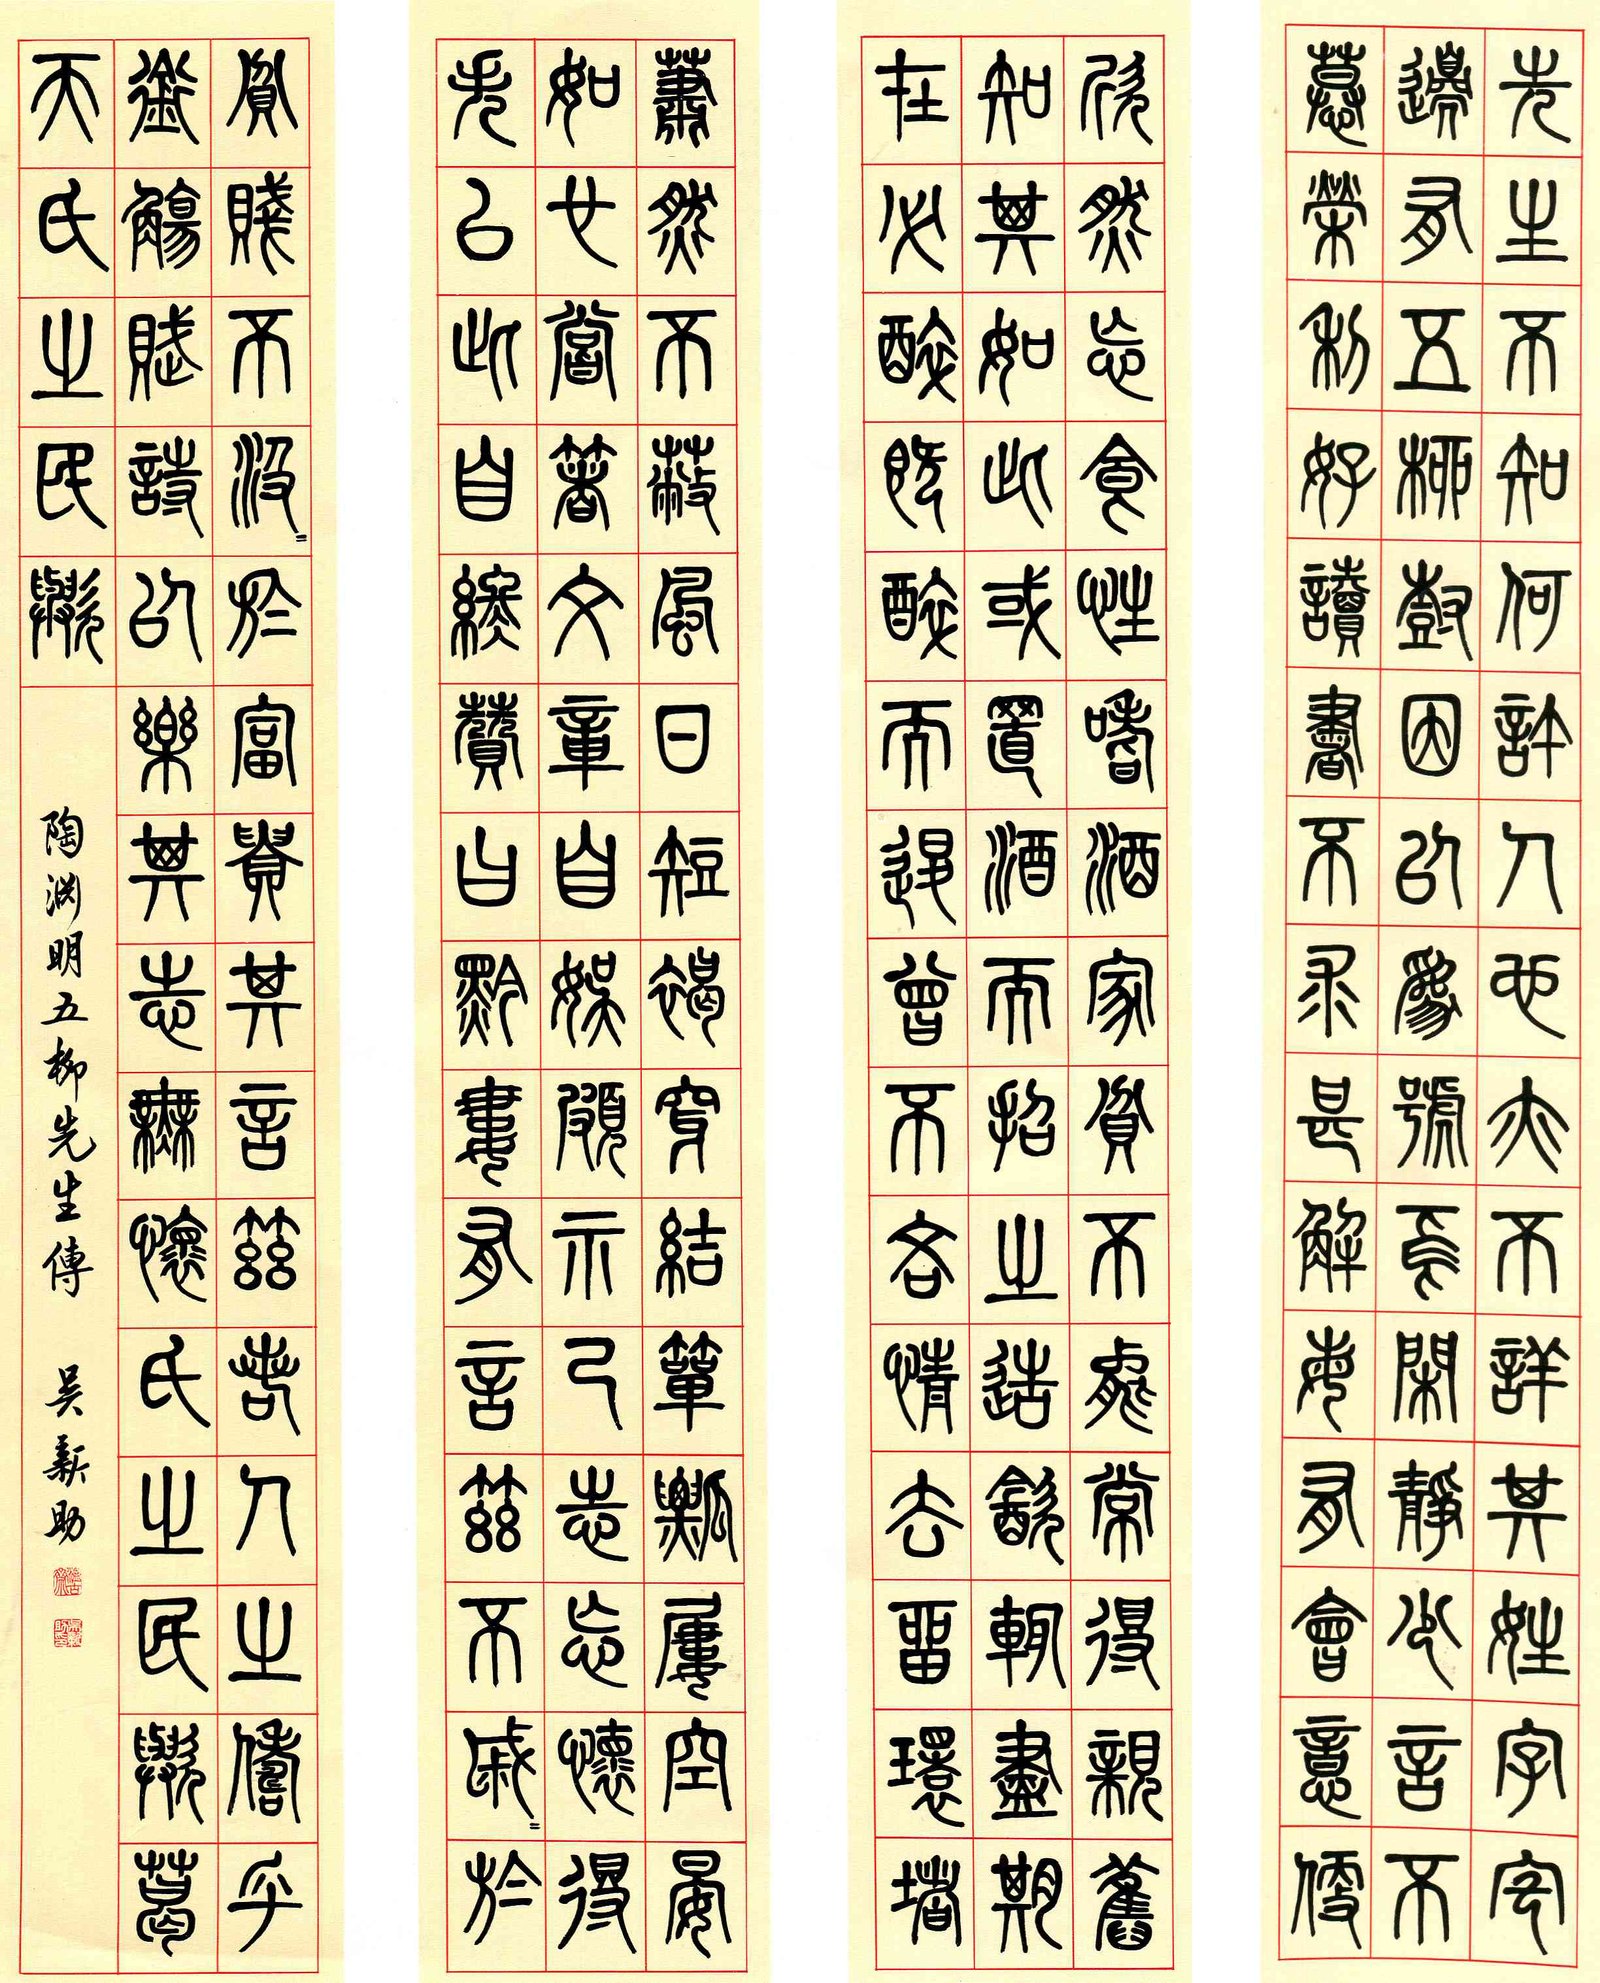 先生不知何許人也亦不詳其姓字宅
邊有五柳樹因以為號焉閑靜少言不
慕榮利好讀書不求甚解每有會意便
欣然忘食性嗜酒家貧不能常得親舊
知其如此或置酒而招之造飲輒盡期
在必醉既醉而退曾不吝情去留環堵
蕭然不蔽風日短褐穿結簞瓢屢空晏
如也嘗著文章自娛頗示己志忘懷得
失以此自終贊曰黔婁有言茲不戚=於
貧賤不汲=於富貴其言茲若人之儔乎
銜觴賦詩以樂其志無懷氏之民歟葛
天氏之民歟
陶淵明五柳先生傳 吳新助